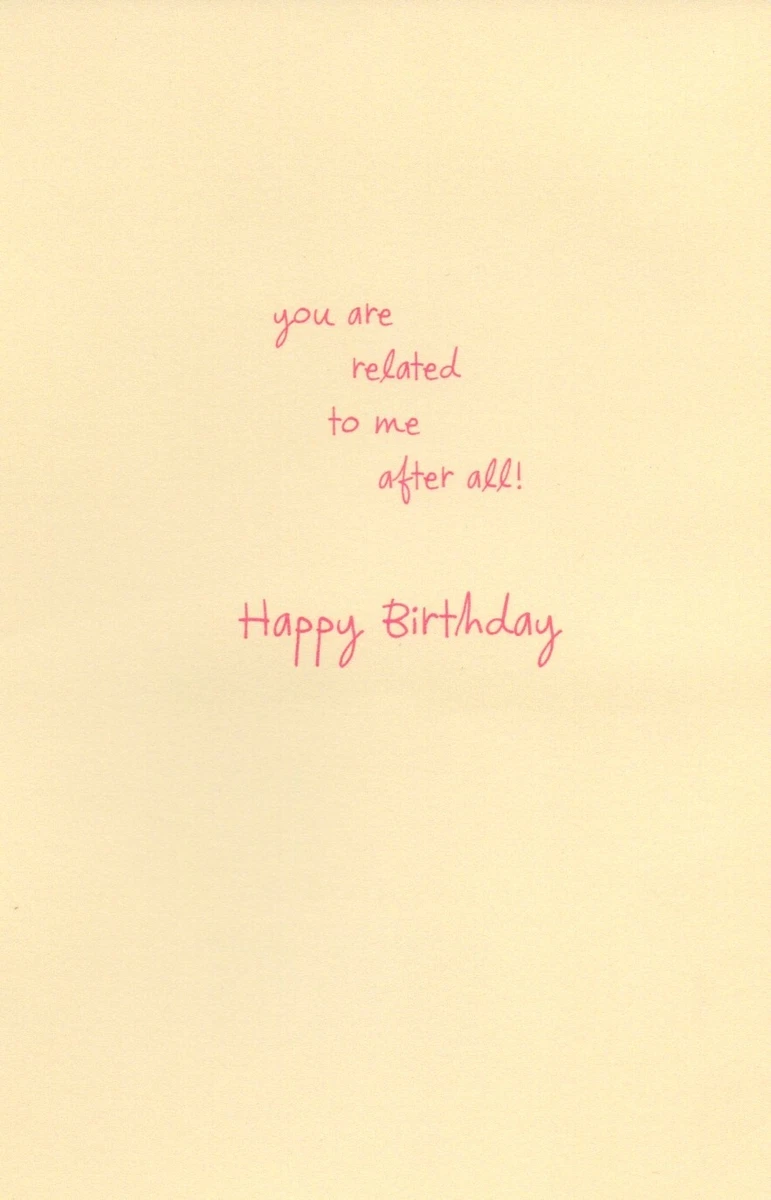 you are
related
to me
after all!
Happy Birthday